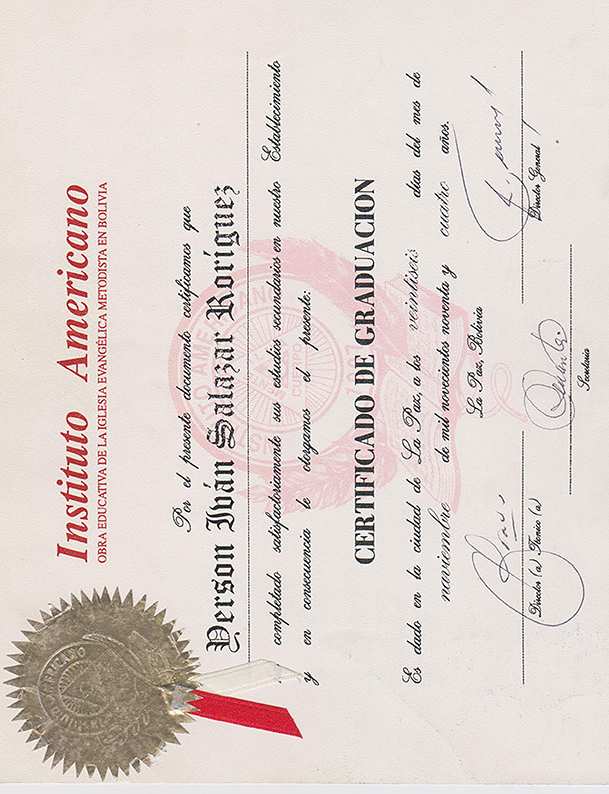 Instituto Americano
OBRA EDUCATIVA DE LA IGLESIA EVANGÉLICA METODISTA EN BOLIVIA
Por el presente documento certificamos que
Yerson Iván Salazar Roríguez
completado satisfactoriamente sus estudios secundarios en nuestro Establecimiento
y en consecuencia le otorgamos el presente:
CERTIFICADO DE GRADUACION
Es dado en la ciudad de La Paz, a los veintiseis días del mes de
noviembre de mil novecientos noventa y cuatro años.
La Paz, Bolivia
Director (a) Técnico (a)
Secretaria
Director General
INSTITUTO AMERICANO
AMERICANO